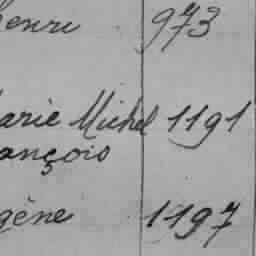 enri 973
arie Michel 1191
ançois
gène 1197